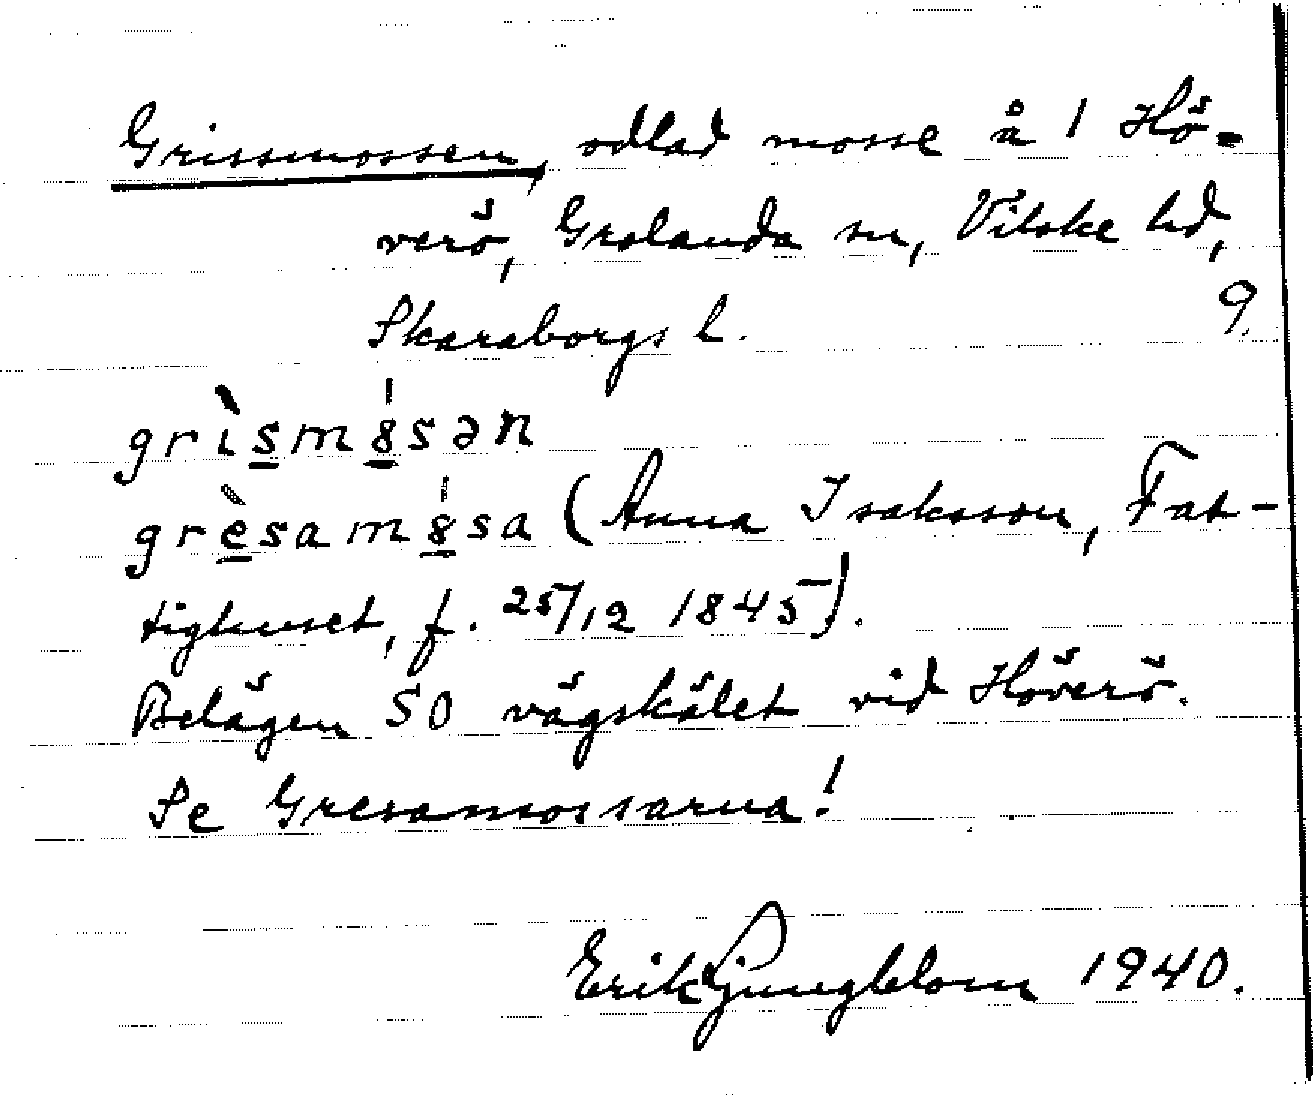 Grissmossen, odlad mosse å 1 Hö-
verö, Grolanda sn, Vilske hd,
Skaraborgs l. 9.
grìsm8́sən
grèsam8́sa (Anna Isaksson, Fat-
tighuset, f. 25/12 1845).
Belägen SO vägskälet vid Höverö.
Se Gresamossarna!
Erik Ljungblom 1940.